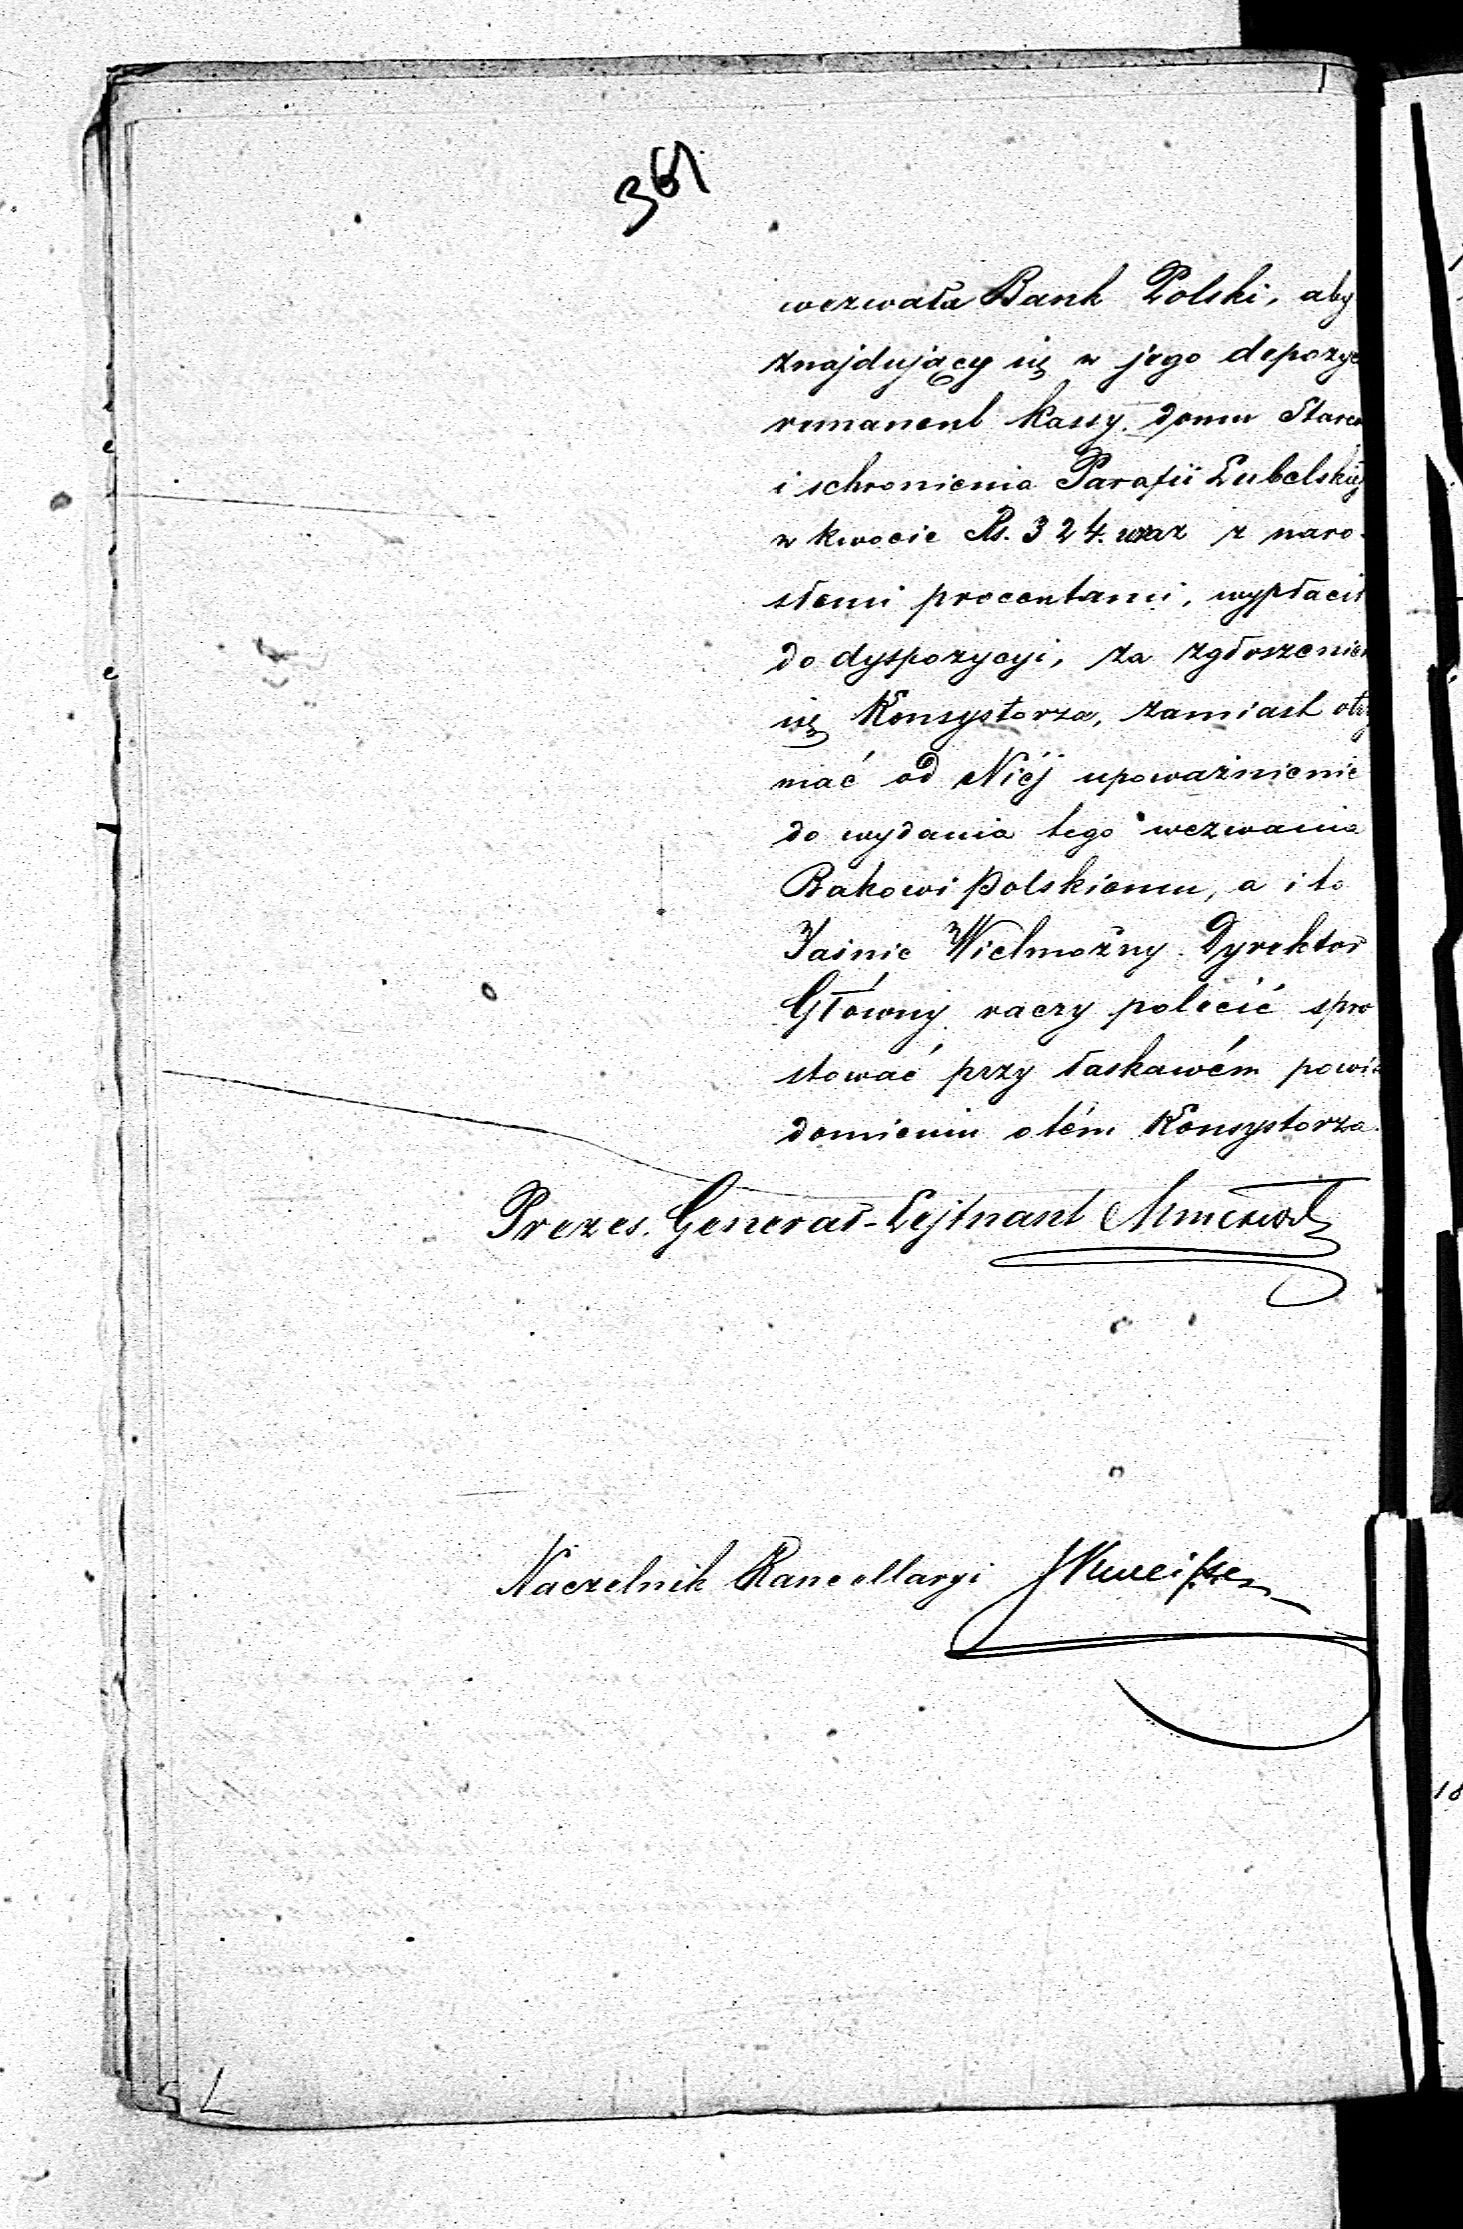 361
wezwała Bank Polski, aby
znajdujący się w jego depozyc
remanent kassy domu Starc
i schronienia Parafii Lubelskiéj
w kwocie Rs. 324. wraz z naro-
słemi procentami, wypłacił
do dyspozycyi, za zgłoszeniem
się Konsystorza, zamiast otrzy
mać od Niéj upoważnienie
do wydania tego wezwania
Bakowi Polskiemu, a i to
Jaśnie Wielmożny Dyrektor
Główny raczy polecić spro
stować przy łaskawém powia
domieniu o tém Konsystorza.
Prezes. Generał-Lejtnant
Naczelnik Kancellaryi